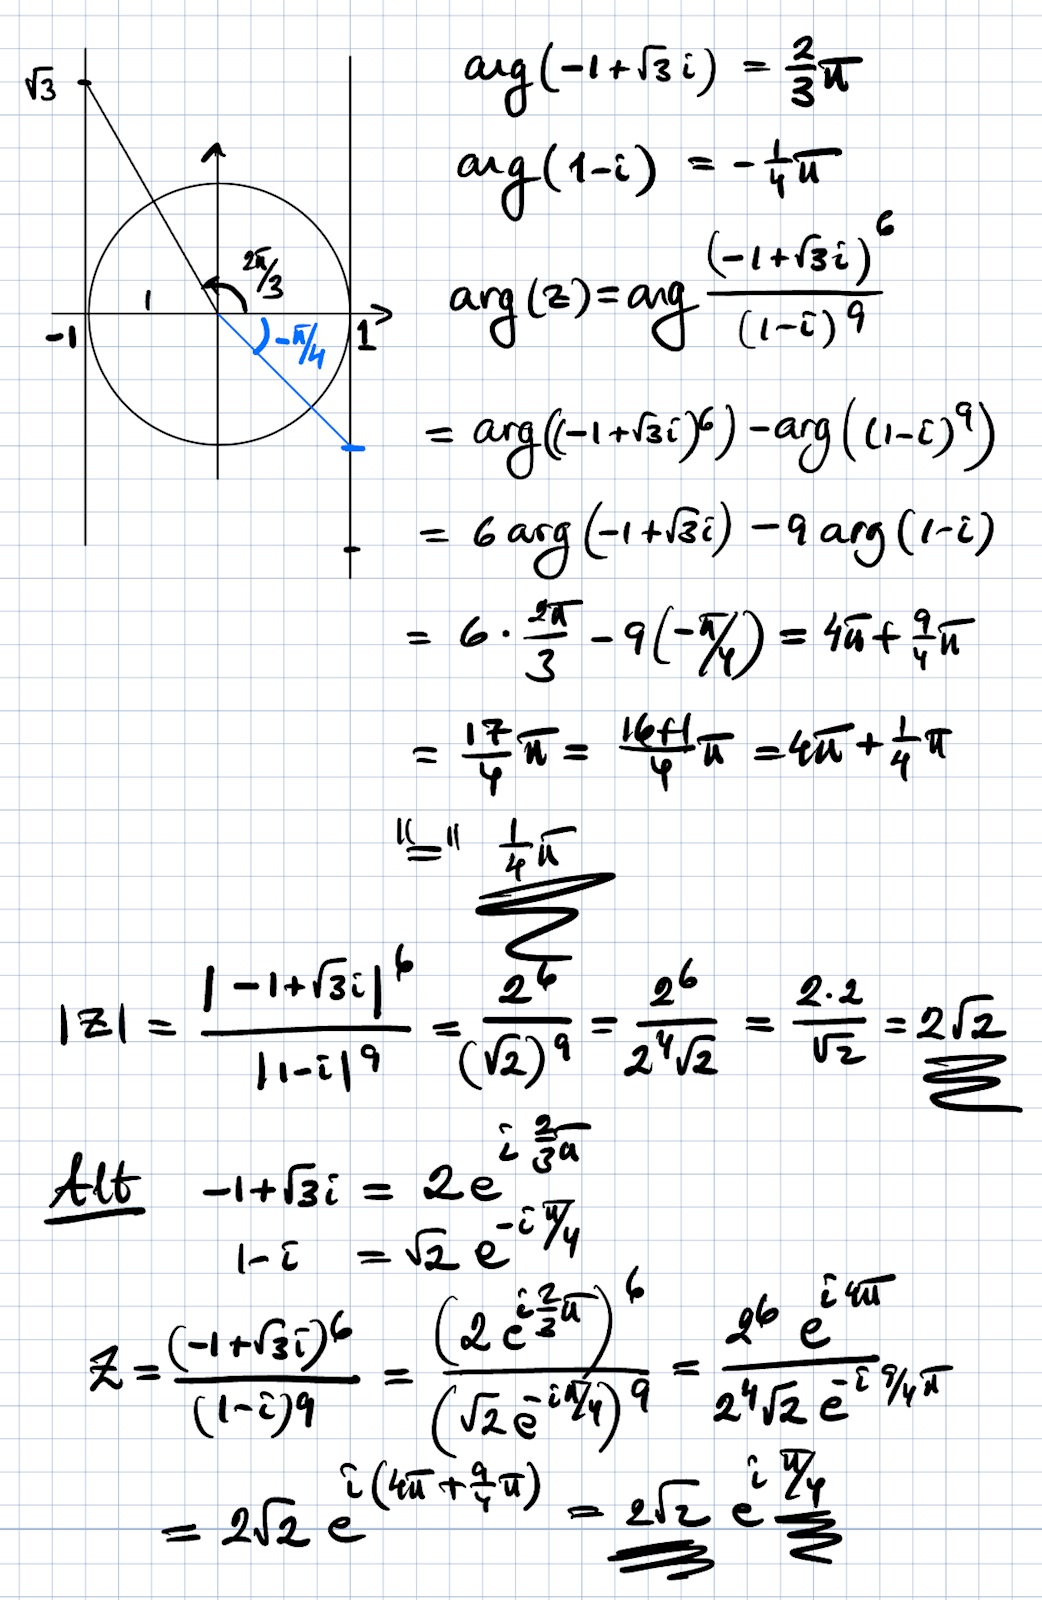 √3
2π/3
1
-1
-π/4
1
arg(-1+√3i) = 2/3 π
arg(1-i) = -1/4 π
arg(z) = arg (-1+√3i)^6 / (1-i)^9
= arg((-1+√3i)^6) - arg((1-i)^9)
= 6 arg(-1+√3i) - 9 arg(1-i)
= 6 · 2π/3 - 9(-π/4) = 4π + 9/4 π
= 17/4 π = 16+1/4 π = 4π + 1/4 π
"=" 1/4 π
|z| = |-1+√3i|^6 / |1-i|^9 = 2^6 / (√2)^9 = 2^6 / 2^4√2 = 2·2 / √2 = 2√2
Alt -1+√3i = 2e^{i 2/3 π}
1-i = √2 e^{-iπ/4}
Z = (-1+√3i)^6 / (1-i)^9 = (2e^{i 2/3 π})^6 / (√2 e^{-iπ/4})^9 = 2^6 e^{i4π} / 2^4√2 e^{-i 9/4 π}
= 2√2 e^{i(4π + 9/4 π)} = 2√2 e^{iπ/4}